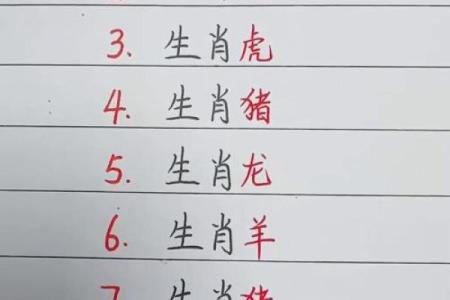 3. 生肖虎
4. 生肖猪
5. 生肖龙
6. 生肖羊
7. 生肖猪